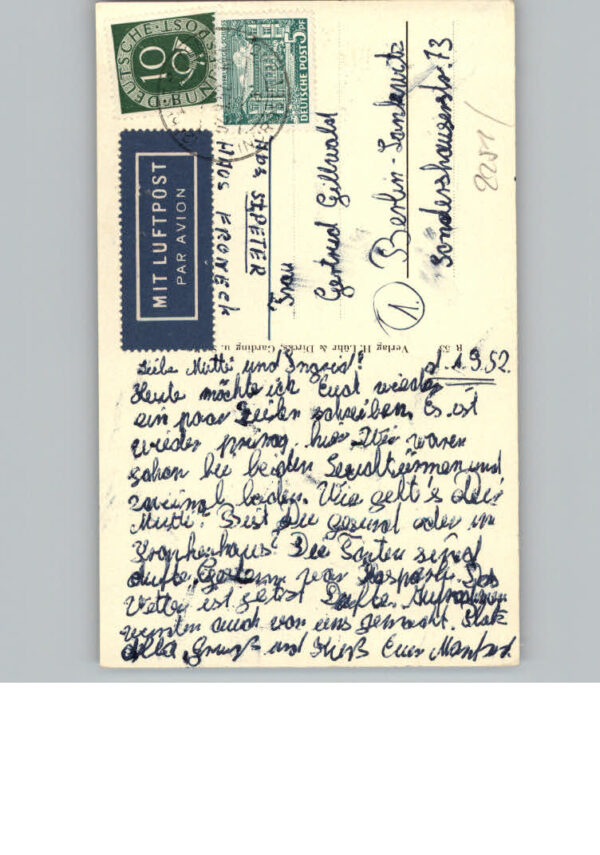 DEUTSCHE BUNDESPOST
10
5 PF
DEUTSCHE POST
MIT LUFTPOST
PAR AVION
Abs ST. PETER
HAUS
Frau
Gertrud Gillwald
1. Berlin-Lankwitz
Sondershauserstr. 13
2251/
Verlag H. Lühr & Dircks, Garding u.
R 53
d. 1.9.52.
Liebe Mutti und Ingrid!
Heute möchte ich Euch wieder
ein paar Zeilen schreiben. Es ist
wieder prima hier. Wir waren
schon bei beiden und
zweimal baden. Wie geht's Dir
Mutti? Bist Du gesund oder im
Krankenhaus? Die Tanten sind
dufte. Gestern war Das
ist jetzt Aufnahmen
wurden auch von uns gemacht.
Gruß und Kuß Euer Manfred.